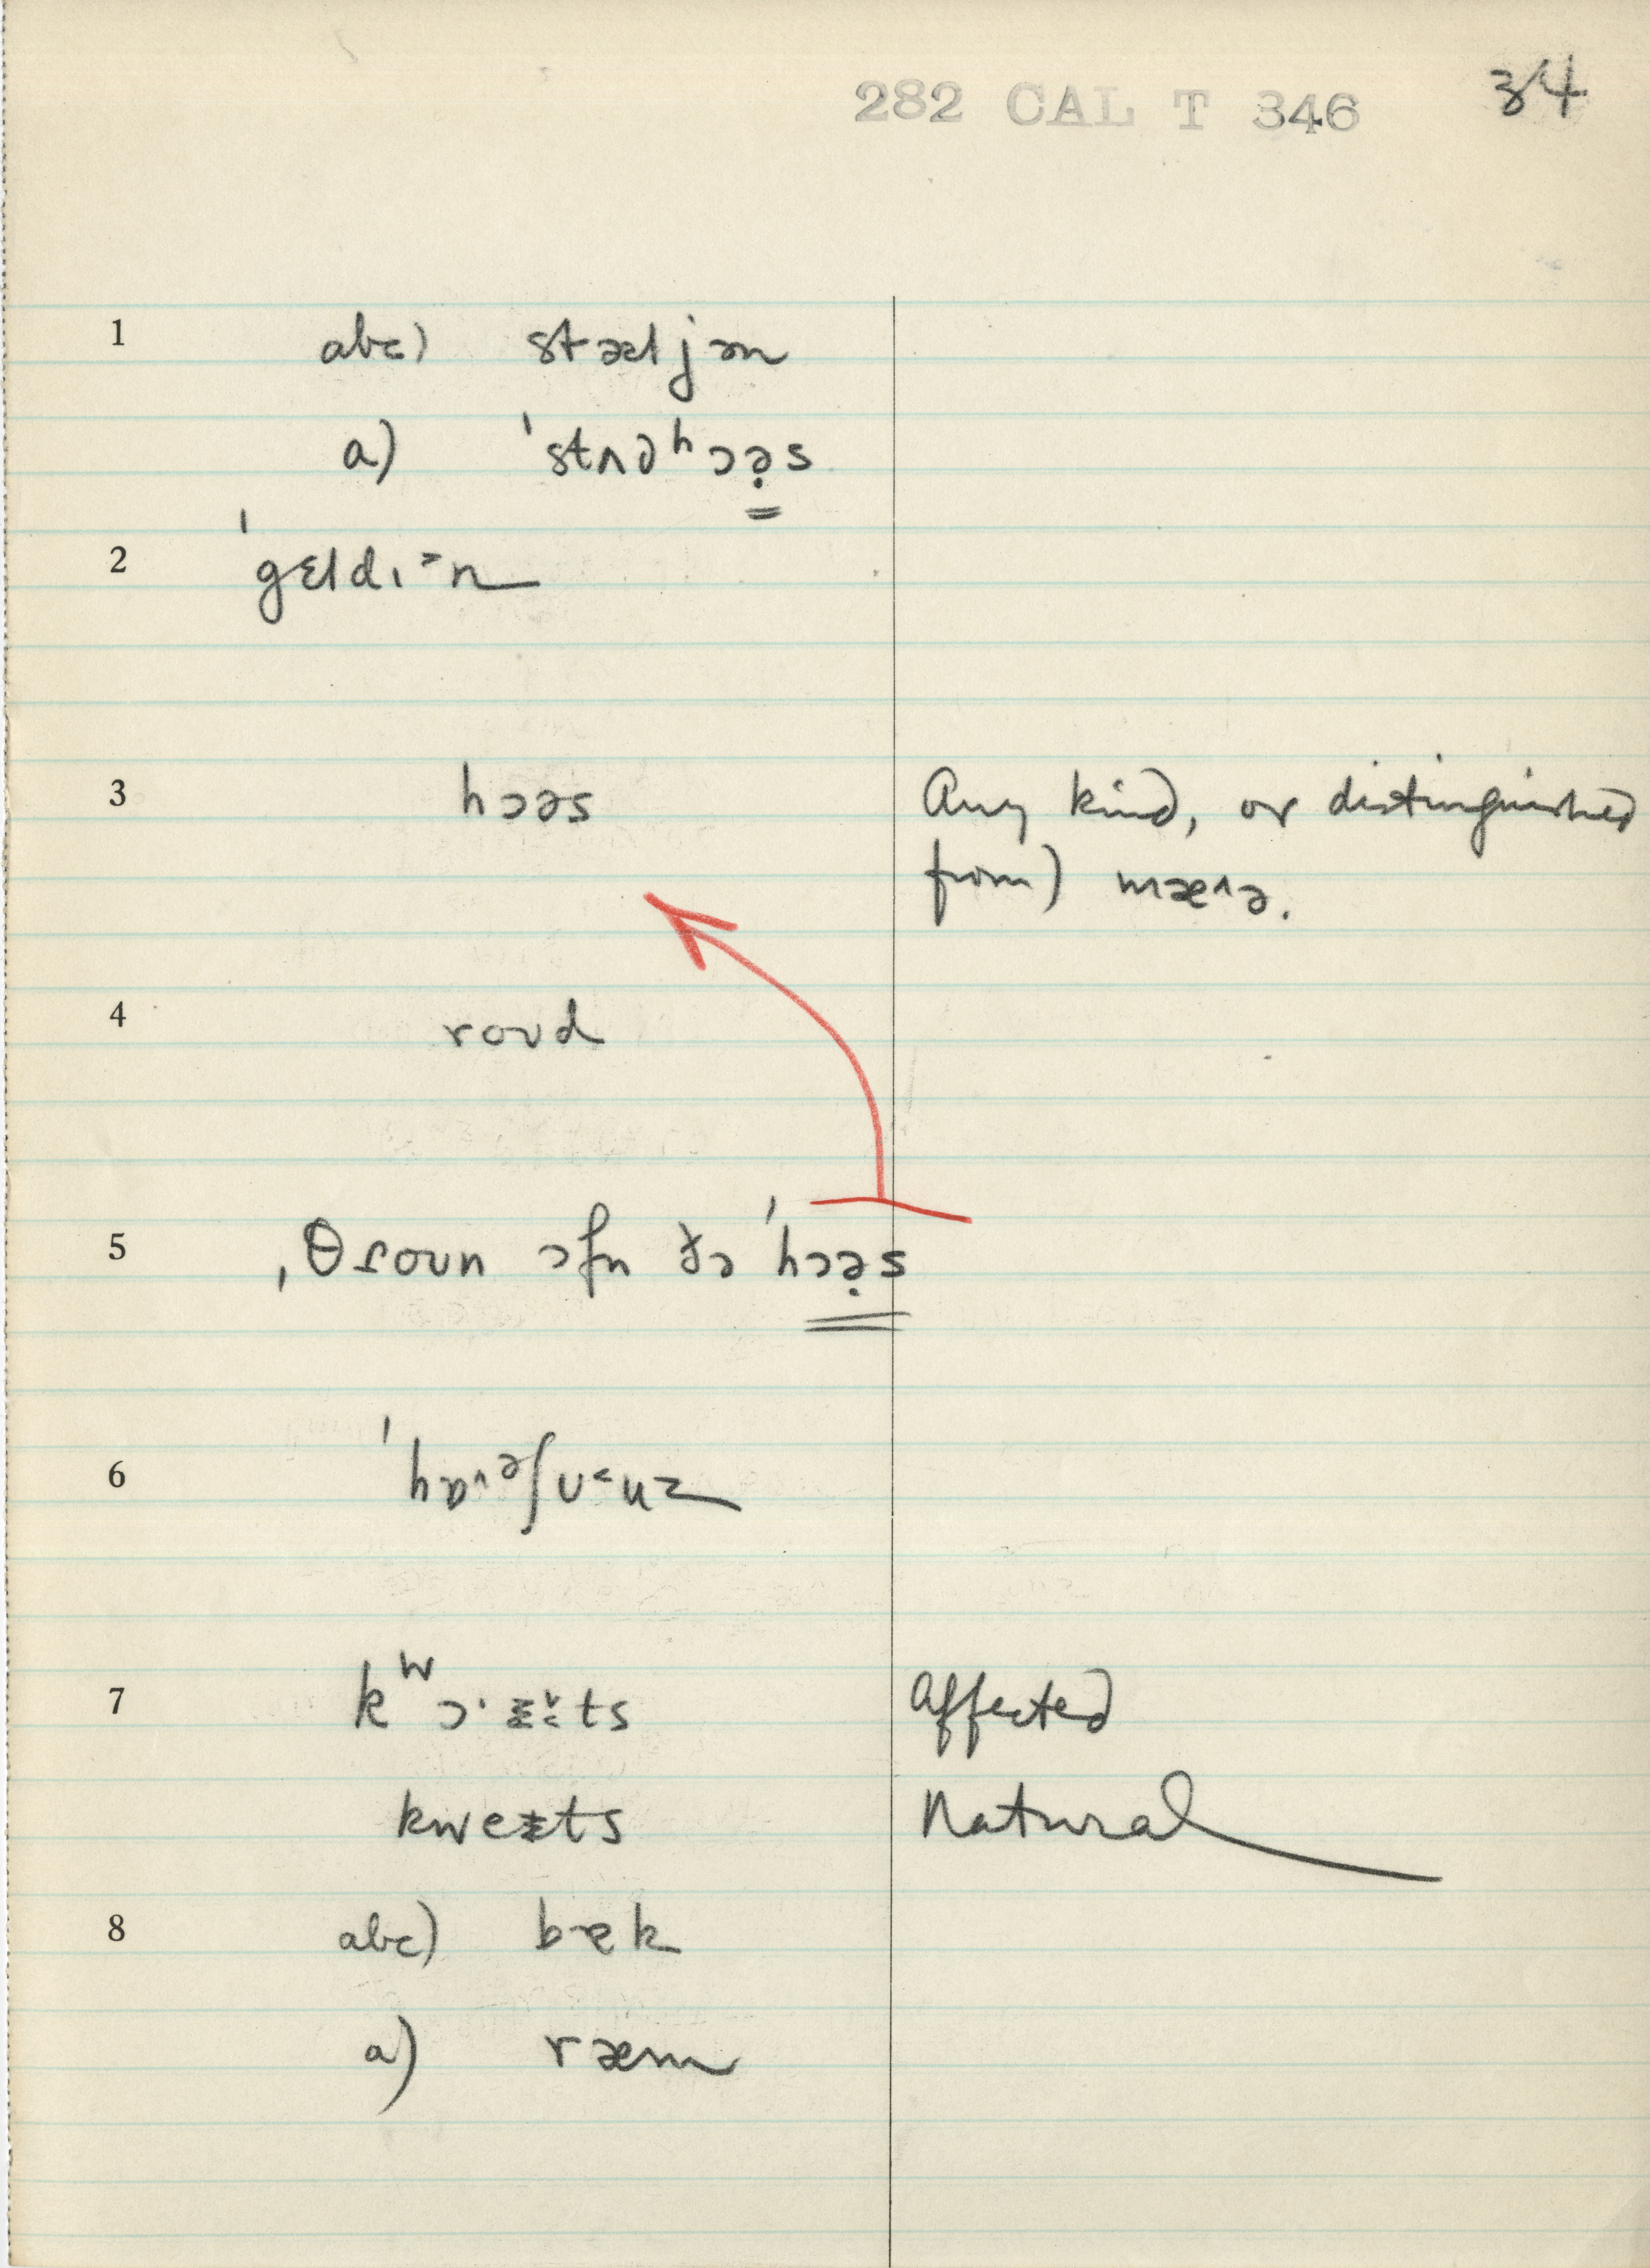 282 CAL T 346 34
1 abc) stæljən
a) ˈstʌdʰɔə̣s
2 ˈgɛldɪ˃n
3 hɔəs Any kind, or distinguished
from) mæ^ə.
4 roʊd
5 ˌθroʊn ɔfn ðə ˈhɔə̣s
6 ˈhɒ^ᵊʃʊ˂uz
7 ts Affected
kweɪts Natural
8 abc) bæk
a) ræm